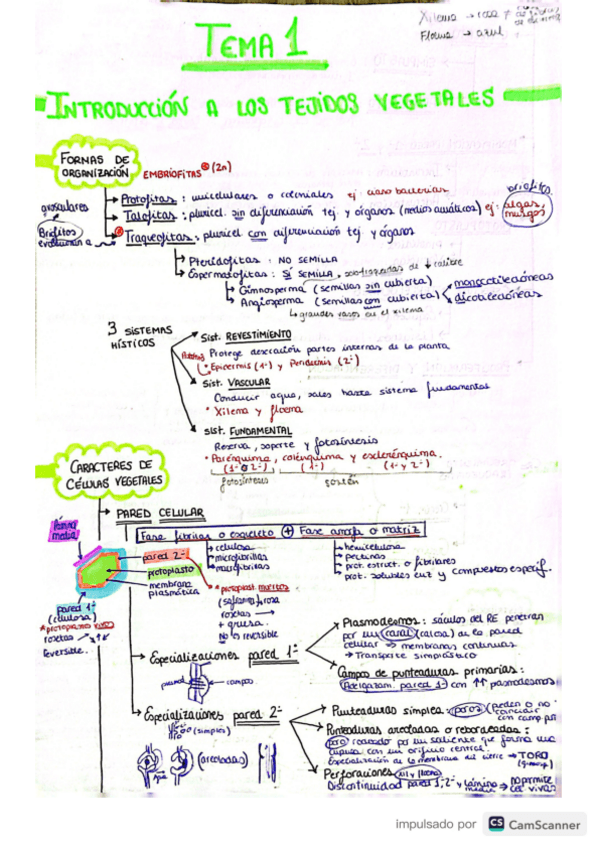 Xilema → rosa
Floema → azul
TEMA 1
INTRODUCCIÓN A LOS TEJIDOS VEGETALES
FORMAS DE ORGANIZACIÓN
EMBRIOFITAS (2n)
→ Protofitas: unicelulares o coloniales ej:
→ Talofitas: pluricel. sin diferenciación tej. y órganos (medios acuáticos) ej: algas, musgos
briofitos
Briofitos evolucionan a
→ Traqueofitas: pluricel con diferenciación tej y órganos
→ Pteridofitas: NO SEMILLA
→ Espermatofitas: SÍ SEMILLA, de ↓ calibre
→ Gimnosperma (semillas sin cubierta)
→ Angiosperma (semillas con cubierta)
monocotiledóneas
dicotiledóneas
↳ grandes vasos en el xilema
3 SISTEMAS HÍSTICOS
Sist. REVESTIMIENTO
Protege desecación partes internas de la planta
• Epidermis (1ª) y Peridermis (2ª)
Sist. VASCULAR
Conducir agua, sales hasta sistema fundamental
• Xilema y floema
Sist. FUNDAMENTAL
Reserva, soporte y fotosíntesis
• Parénquima, colénquima y esclerénquima.
(1ª o 2ª) (1ª) (1ª y 2ª)
fotosíntesis sostén
CARACTERES DE CÉLULAS VEGETALES
→ PARED CELULAR
Fase fibrilar o esqueleto + Fase amorfa o matriz
→ celulosa
→ microfibrillas
→ macrofibrillas
→ hemicelulosa
→ pectinas
→ prot. estruct. o fibrilares
prot. solubles enz y compuestos específ.
lámina media
pared 2ª
protoplasto
membrana plasmática
pared 1ª (celulosa)
reversible.
* protoplast. muertos
+ gruesa.
No es reversible
→ Especializaciones pared 1ª
pared
campo
→ Plasmodesmos: sáculos del RE penetran
por un canal (calosa) de la pared
celular → membranas continuas
→ Transporte simplástico
→ Campos de punteaduras primarias:
Adelgazam. pared 1ª con ↑↑ plasmodesmos
→ Especializaciones pared 2ª
(simples)
(areoladas)
→ Punteaduras simples: poros (pueden o no coincidir con camp. pri)
→ Punteaduras areoladas o reboreadas:
poro rodeado por un saliente que forma una
cúpula con un orificio central.
Especialización de la membrana del cierre → TORO
→ Perforaciones
Discontinuidad pared 1ª, 2ª y lámina media →
impulsado por CS CamScanner